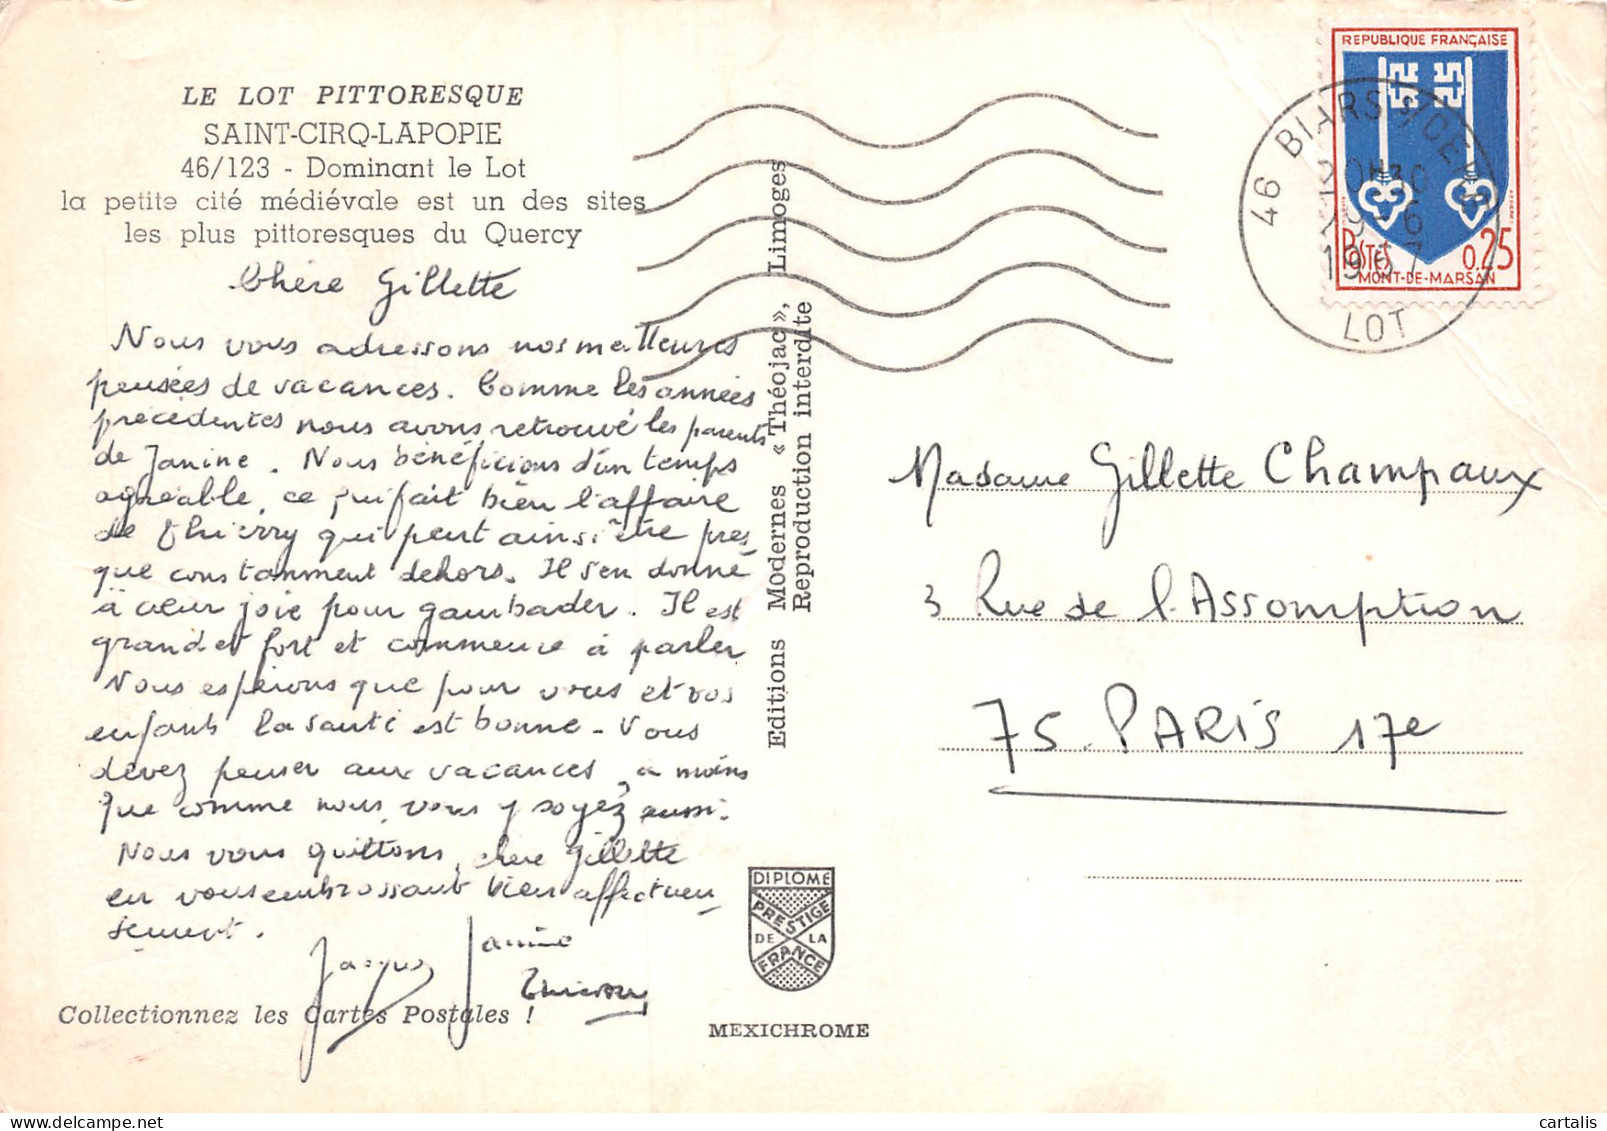 LE LOT PITTORESQUE
SAINT-CIRQ-LAPOPIE
46/123 - Dominant le Lot
la petite cité médiévale est un des sites
les plus pittoresques du Quercy
Chère Gillette
Nous vous adressons nos meilleures
pensées de vacances. Comme les années
précédentes nous avons retrouvé les parents
de Janine. Nous bénéficions d'un temps
agréable, ce qui fait bien l'affaire
de Thierry qui peut ainsi être pres_
que constamment dehors. Il s'en donne
à cœur joie pour gambader. Il est
grand et fort et commence à parler
Nous espérons que pour vous et vos
enfants la santé est bonne - Vous
devez penser aux vacances, à moins
que comme nous, vous y soyez aussi.
Nous vous quittons, chère Gillette
en vous embrassant bien affectueu_
sement.
Jacques Janine
Thierry
Collectionnez les Cartes Postales !
Editions Modernes « Théojac », Limoges
Reproduction interdite
DIPLOME
PRESTIGE
DE LA
FRANCE
MEXICHROME
REPUBLIQUE FRANÇAISE
POSTES 0.25
MONT-DE-MARSAN
46 BIARS S/ CERE
20H30
29-6
1967
LOT
Madame Gillette Champaux
3 Rue de l'Assomption
75. PARIS 17e
cartalis
delcampe.net